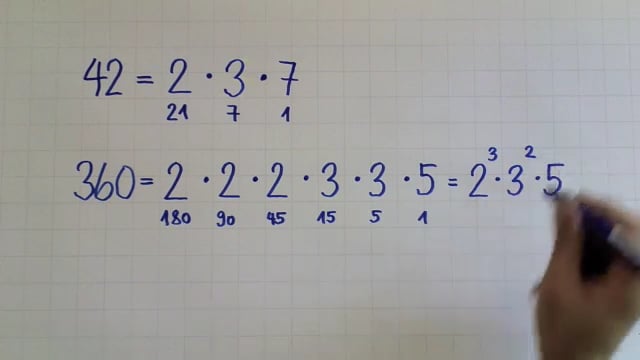 42 = 2 · 3 · 7
21 7 1
360 = 2 · 2 · 2 · 3 · 3 · 5 = 2³ · 3² · 5
180 90 45 15 5 1